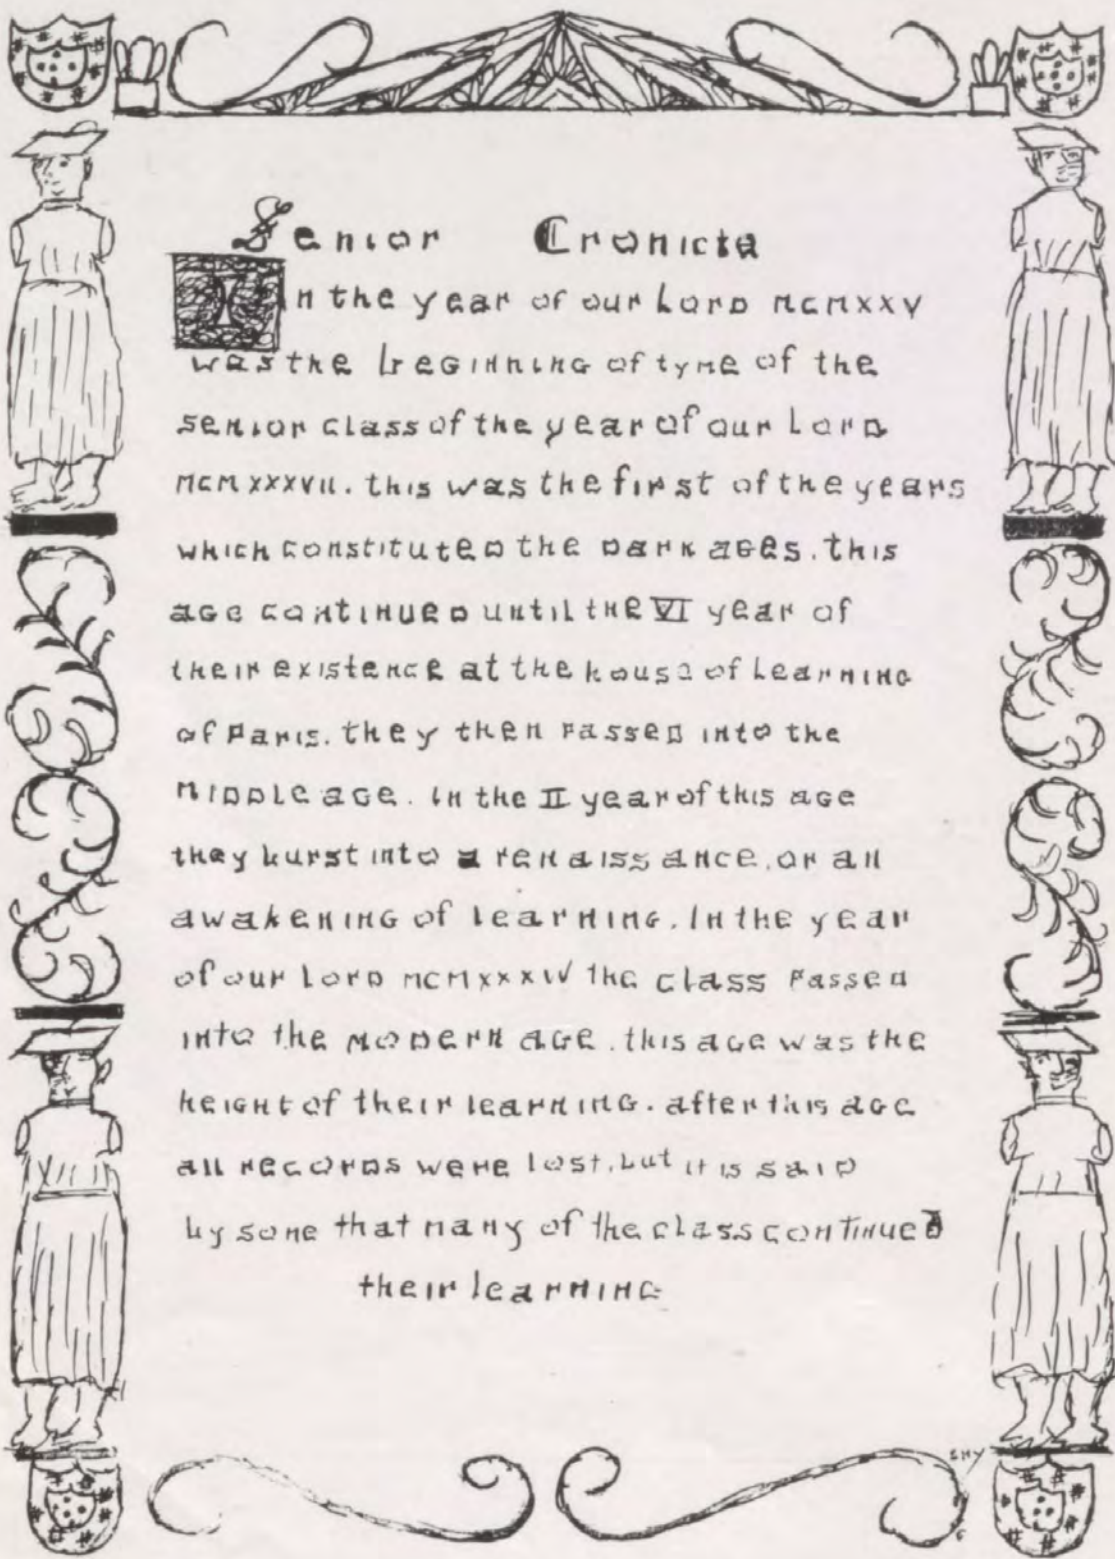 Senior Cronicle
In the year of our Lord MCMXXV
was the beginning of tyme of the
senior class of the year of our Lord
MCMXXXVII. this was the first of the years
which constituted the dark ages. this
age continued until the VI year of
their existence at the house of Learning
of Paris. they then passed into the
middle age. In the II year of this age
they burst into a renaissance, or an
awakening of learning. In the year
of our Lord MCMXXXIV the class passed
into the modern age. this age was the
height of their learning. after this age
all records were lost, but it is said
by some that many of the class continued
their learning